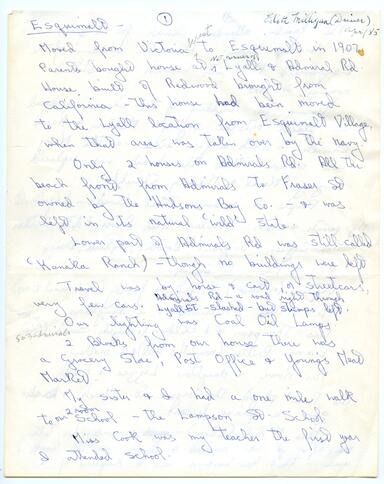 Esquimalt - ① Edith Milligan (Driver)
Apr/85
Moved from Victoria West to Esquimalt in 1907
Parents bought house at Lyall & Admiral Rd
House built of Redwood brought from
California - this house had been moved
to the Lyall location from Esquimalt Village,
when that area was taken over by the navy.
Only 2 houses on Admirals Rd. All the
beach front from Admirals to Fraser St
owned by the Hudsons Bay Co. - & was
left in its natural "wild" state.
Lower part of Admirals Rd was still called
"Kanaka Ranch" - though no buildings were left
Travel was by horse & cart, or streetcars,
very few cars. Admirals Rd - a road right through
Lyall St - slashed - but stumps left.
Our lighting was Coal Oil Lamps
2 Blocks from our house there was
a Grocery Store, Post Office & Youngs Meat
Market
My sister & I had a one mile walk
to our 2 room School - the Lampson St School
Miss Cook was my teacher the first year
I attended school.